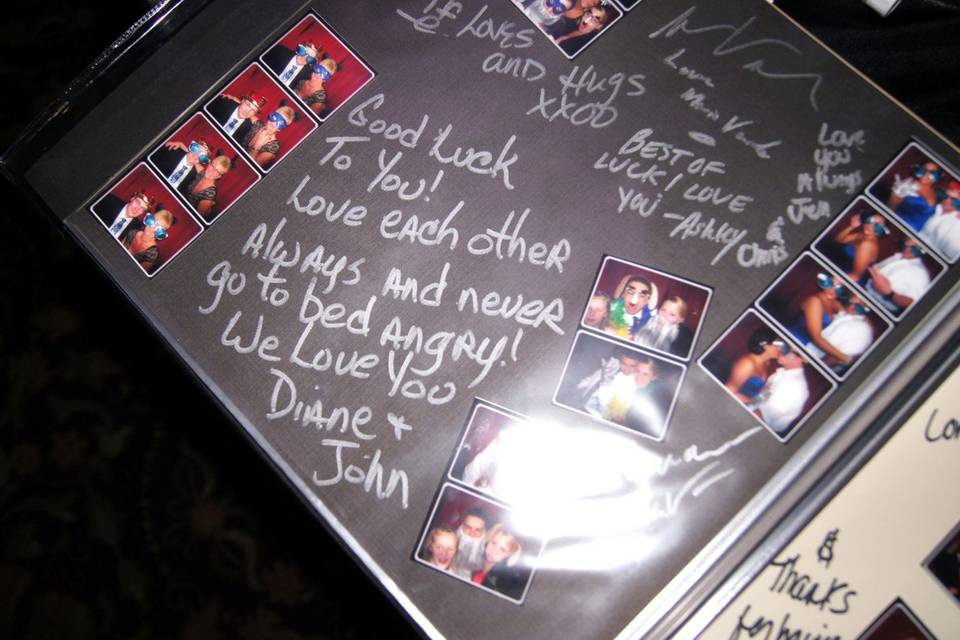 Loves
and Hugs
XXOO
Good Luck
To You!
Love each other
Always and never
go to bed angry!
We Love You
Diane +
John
Love
BEST OF
LUCK! LOVE
YOU -Ashley
Love
you
Always
Jen
&
Chris
&
Thanks
for having